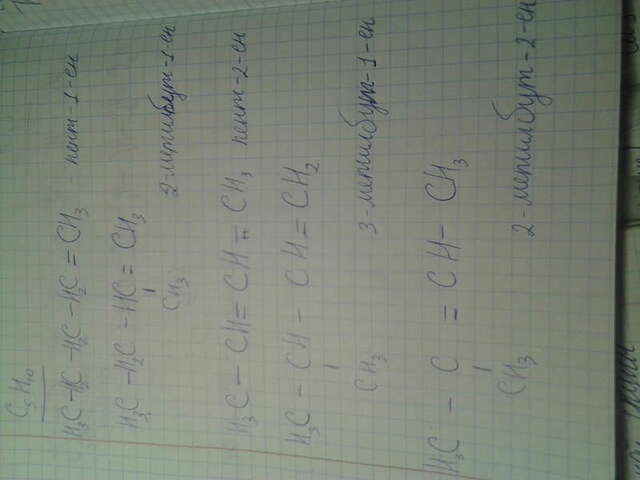 C₅H₁₀
H₃C-H₂C-H₂C-HC=CH₃ пент-1-ен
H₃C-H₂C-HC=CH₃
CH₃
2-метилбут-1-ен
H₃C-CH=CH=CH₃ пент-2-ен
H₃C-CH-CH=CH₂
CH₃
3-метилбут-1-ен
H₃C-C=CH-CH₃
CH₃
2-метилбут-2-ен